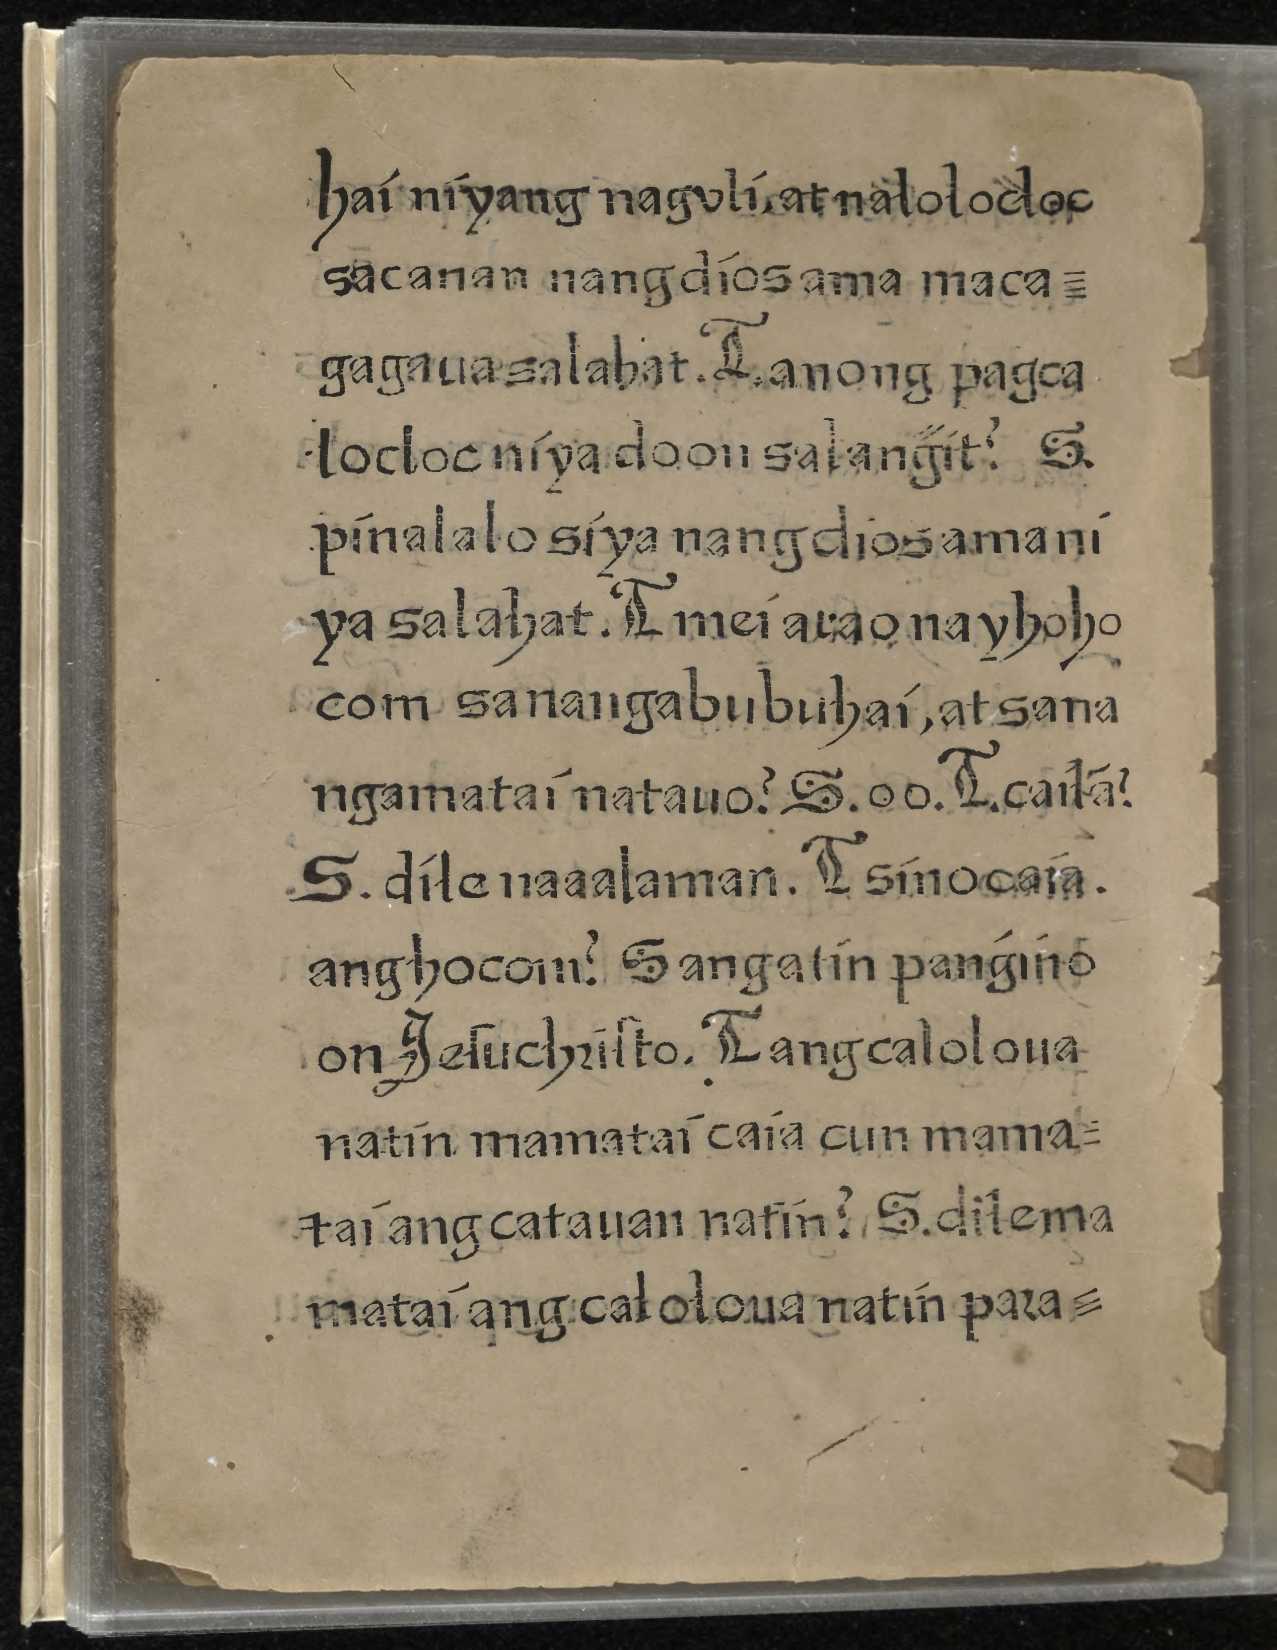 hai niyang naguli, at nalolocloc
sa canan nang dios ama maca
gagaua sa lahat. T. anong pagca
locloc niya doon sa lang̃it? S.
pinalalo siya nang dios ama ni
ya sa lahat. T mei arao na yhoho
com sa nanga bubuhai, at sa na
nga matai na tauo? S. oo. T. cailā?
S. di le naaalaman. T sino caia.
ang hocom? S ang atin pang̃ino
on Jesuchristo. T ang caloloua
natin mamatai caia cun mama-
tai ang catauan natin? S. di le ma
matai ang caloloua natin para